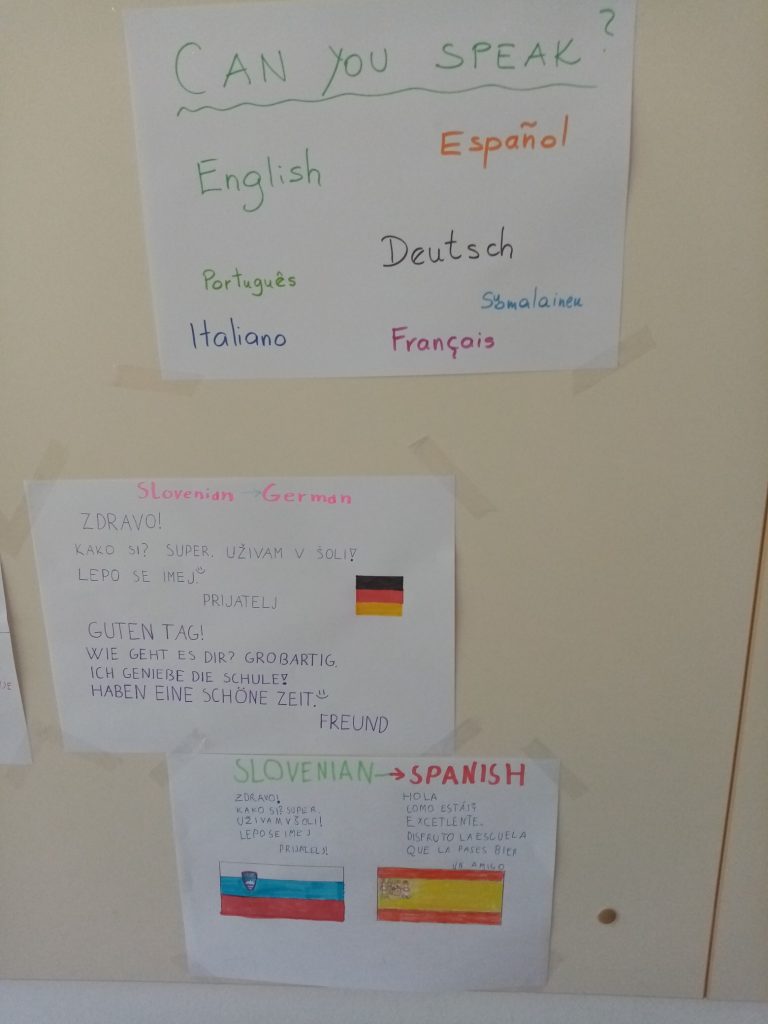 CAN YOU SPEAK?
English Español
Deutsch
Português
Suomalainen
Italiano Français
Slovenian → German
ZDRAVO!
KAKO SI? SUPER. UŽIVAM V ŠOLI!
LEPO SE IMEJ.
PRIJATELJ
GUTEN TAG!
WIE GEHT ES DIR? GROßARTIG.
ICH GENIEßE DIE SCHULE!
HABEN EINE SCHÖNE ZEIT.
FREUND
SLOVENIAN → SPANISH
ZDRAVO!
KAKO SI? SUPER.
UŽIVAM V ŠOLI!
LEPO SE IMEJ
PRIJATELJ!
HOLA
COMO ESTÁIS
EXCETLENTE.
DISFRUTO LA ESCUELA
QUE LA PASES BIEN
UN AMIGO